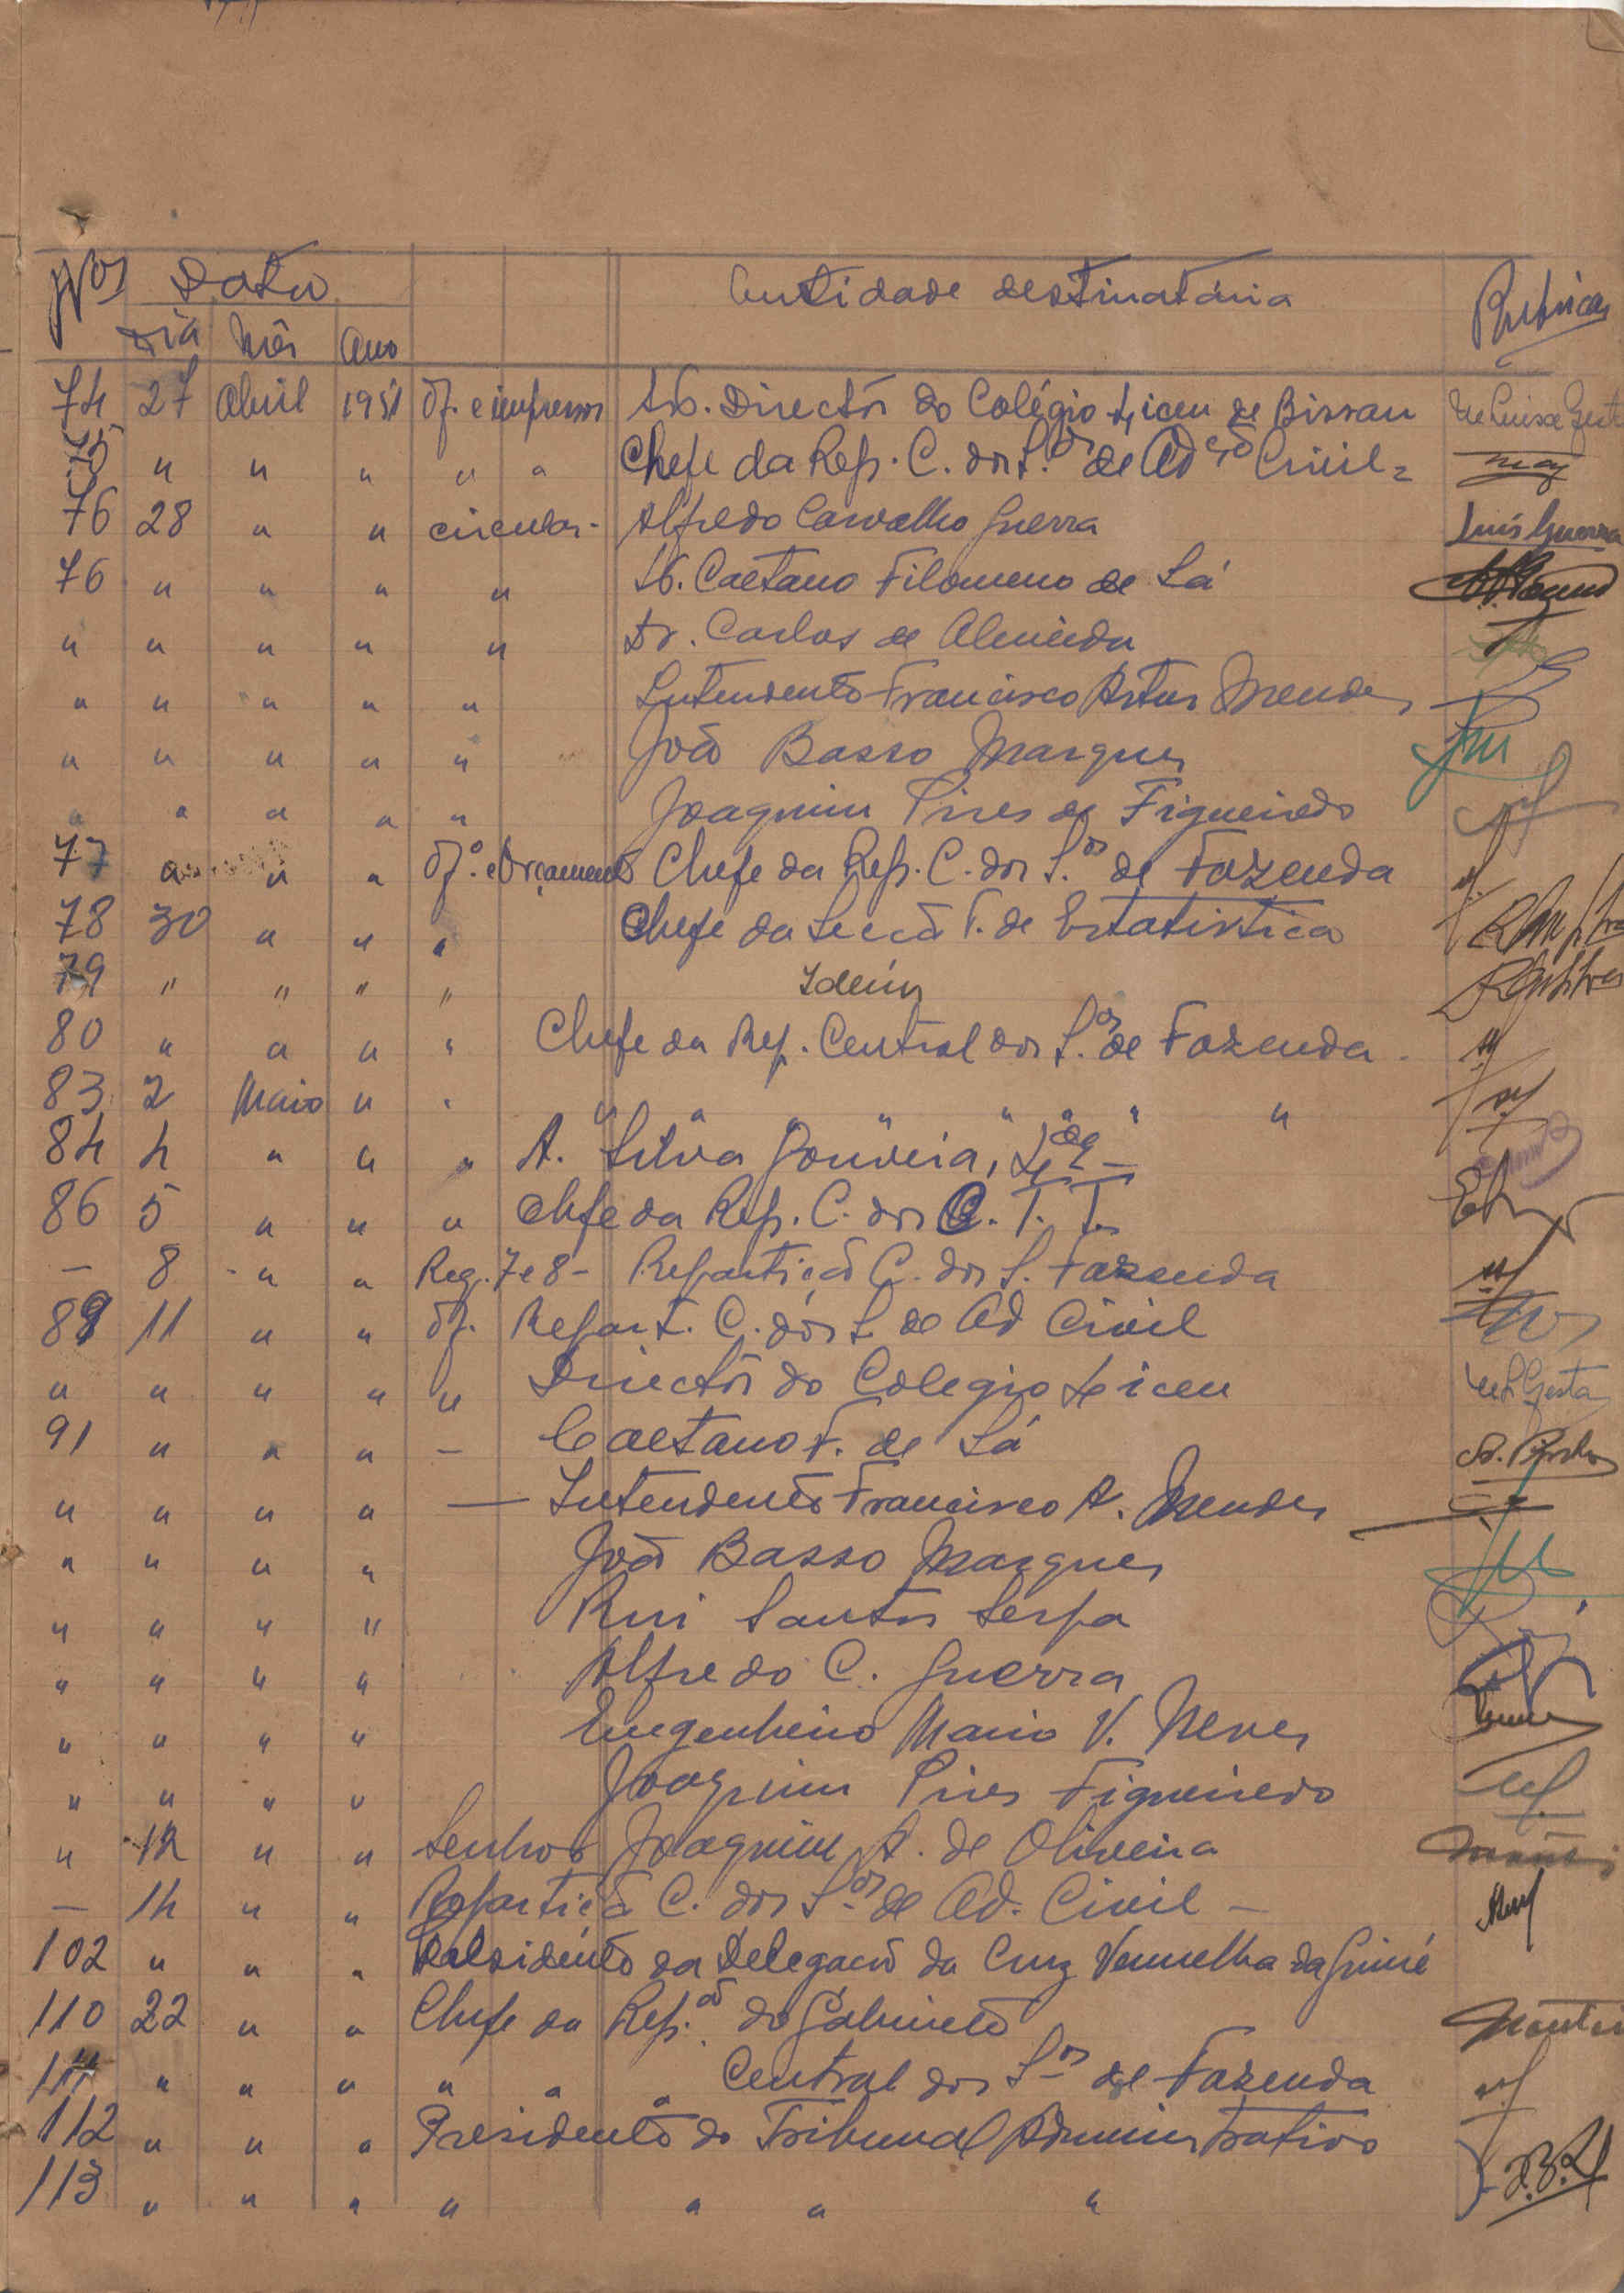 Nos Data Entidade destinatária Rubricas
Dia Mês Ano
74 27 Abril 1951 Of. e impressos Sr. Director do Colégio Liceu de Bissau
75 " " " " " Chefe da Rep. C. dos S.os de Ad. Civil
76 28 " " circular - Alfredo Carvalho Guerra Luís Guerra
76 " " " " Sr. Caetano Filomeno de Sá
" " " " " Dr. Carlos de Almeida
" " " " " Intendente Francisco Artur Mendes
" " " " " João Basso Marques
" " " " " Joaquim Pires de Figueiredo
77 " " " Of.º e Orçamento Chefe da Rep. C. dos S.os de Fazenda
78 30 " " " Chefe da Secção T. de Estatistica
79 " " " " Idem
80 " " " " Chefe da Rep. Central dos S.os de Fazenda.
83 2 Maio " " " " " " " " " "
84 4 " " " A. Silva Gouveia, L.da
86 5 " " " Chefe da Rep. C. dos C. T. T.
- 8 " " Reg. 7 e 8 - Repartição C. dos S. Fazenda
89 11 " " Of. Repart. C. dos S. de Ad Civil
" " " " " Director do Colegio Liceu
91 " " " - Caetano F. de Sá
" " " " - Intendente Francisco A. Mendes
" " " " João Basso Marques
" " " " Rui Santos Serpa
" " " " Alfredo C. Guerra
" " " " Engenheiro Mario V. Neves
" " " " Joaquim Pires Figueiredo
" 12 " " Senhor Joaquim A. de Oliveira
- 14 " " Repartição C. dos S.os de Ad. Civil -
102 " " " Presidente da Delegação da Cruz Vermelha da Guiné
110 22 " " Chefe da Rep.ão do Gabinete
111 " " " " " " Central dos S.os de Fazenda
112 " " " Presidente do Tribunal Administrativo
113 " " " " " " "